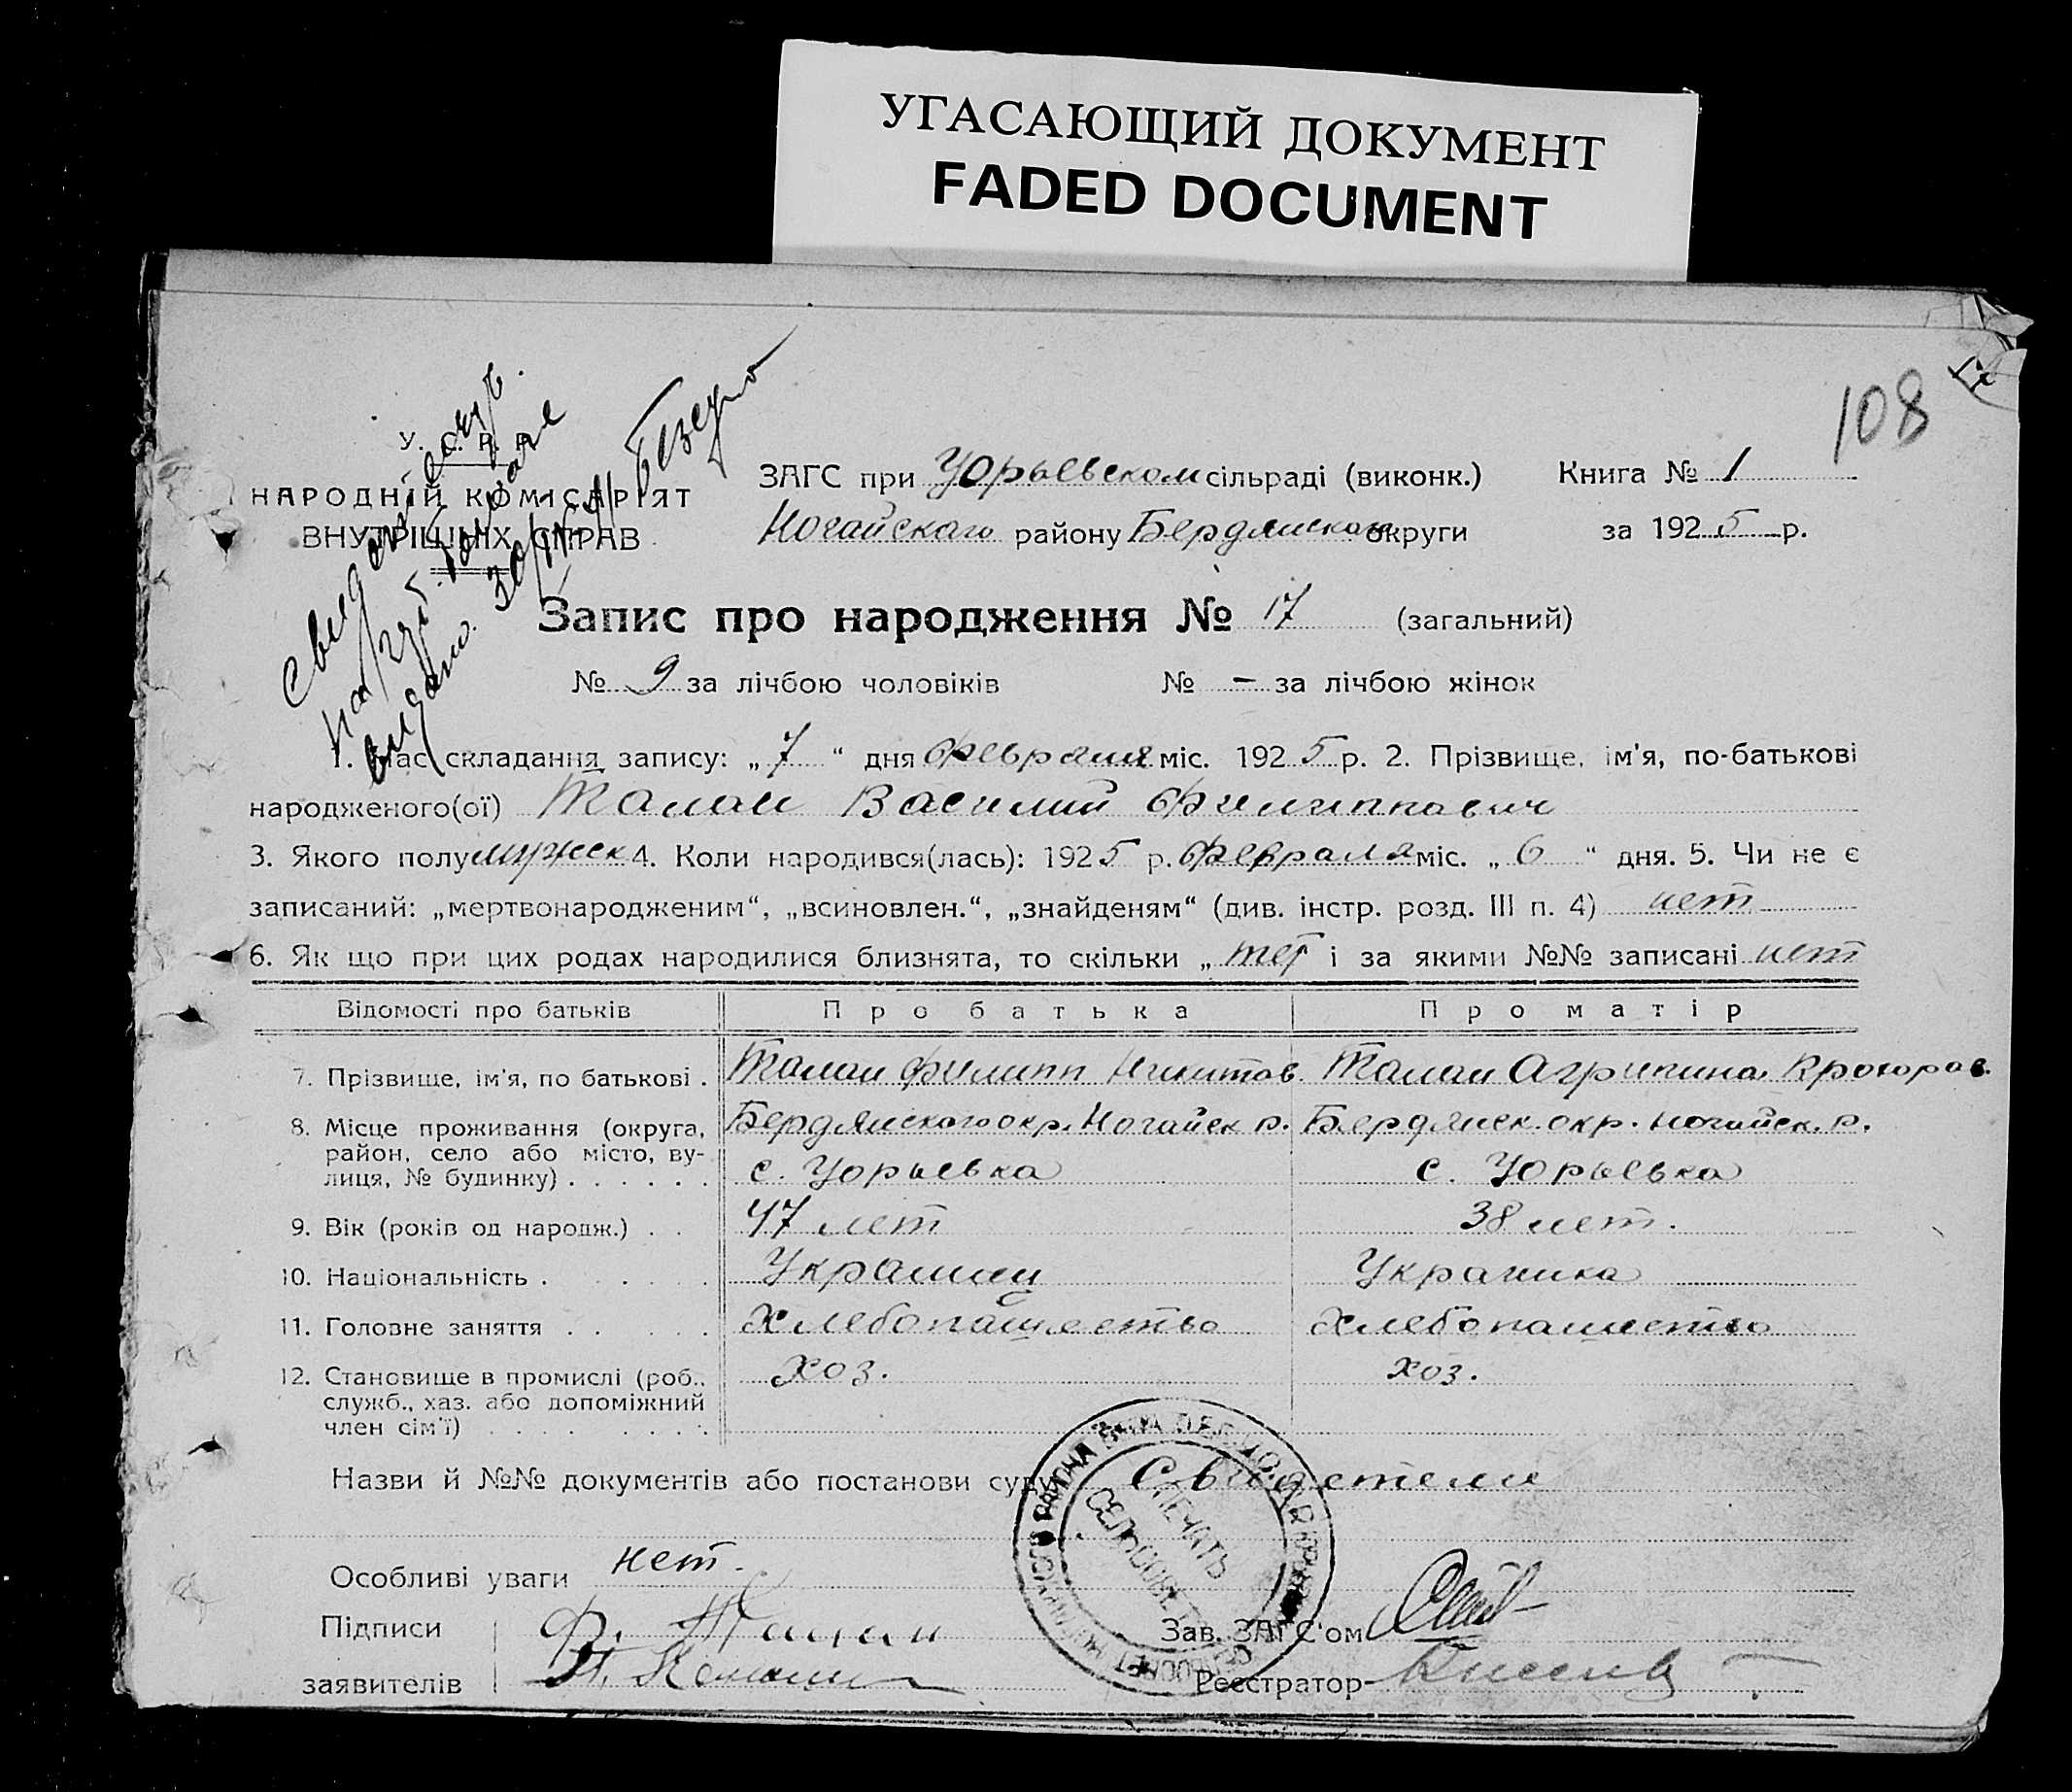 УГАСАЮЩИЙ ДОКУМЕНТ
FADED DOCUMENT
108
17
У. С. Р. Р.
НАРОДНІЙ КОМІСАРІЯТ
ВНУТРІШНІХ СПРАВ
выдано. 30/
ЗАГС при Юрьевском сільраді (виконк.) Книга № 1
Ногайскаго району Бердянскаго округи за 1925 р.
Запис про народження № 17 (загальний)
№ 9 за лічбою чоловіків № – за лічбою жінок
1. Час складання запису: „7“ дня февраля міс. 1925 р. 2. Прізвище, ім'я, по-батькові
народженого(ої) Талан Василий Филиппович
3. Якого полу мужск 4. Коли народився(лась): 1925 р. февраля міс. „6“ дня. 5. Чи не є
записаний: „мертвонародженим“, „всиновлен.“, „знайденям“ (див. інстр. розд. III п. 4) нет
6. Як що при цих родах народилися близнята, то скільки „ і за якими №№ записані нет
Відомості про батьків Про батька Про матір
7. Прізвище, ім'я, по батькові . Талан Филипп Никитов. Талан Агрипина Прохоров.
8. Місце проживання (округа, Бердянского окр. Ногайск р. Бердянск. окр. Ногайск. р.
район, село або місто, ву-
лиця, № будинку) . . . . . . с. Юрьевка с. Юрьевка
9. Вік (років од народж.) . . 47 лет 38 лет.
10. Національність . . . . . . Украинец Украинка
11. Головне заняття . . . . . Хлебопашество Хлебопашество
12. Становище в промислі (роб., хоз. хоз.
служб., хаз. або допоміжний
член сім'ї) . . . . . . . .
Назви й №№ документів або постанови суду Свидетели
ПЕЧАТЬ
СЕЛЬСОВЕТ
Особливі уваги нет.
Підписи Ф. Талан Зав. ЗАГС'ом
заявителів Реєстратор